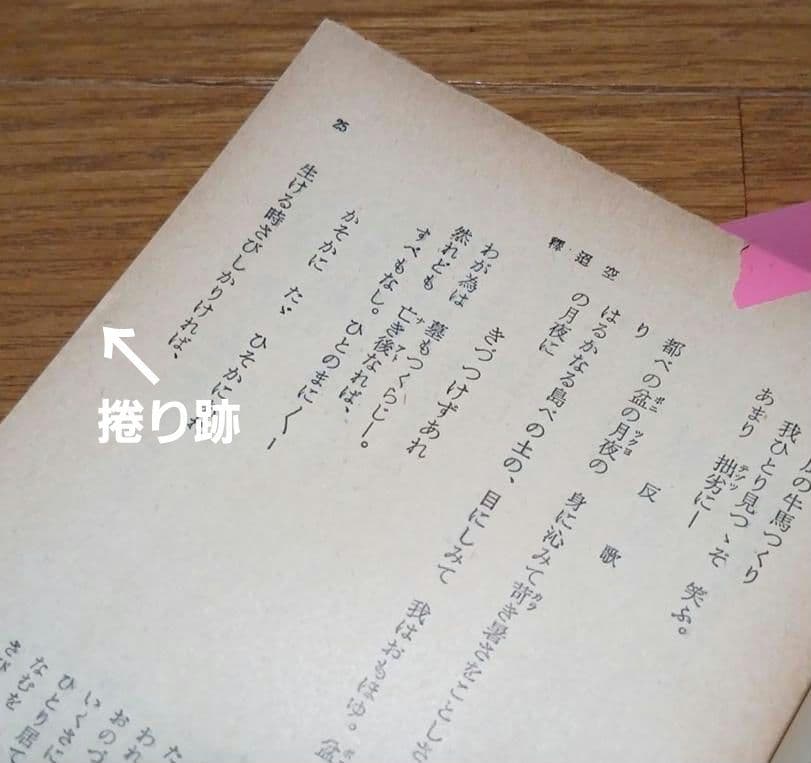 の牛馬つくり
我ひとり見つゝぞ 笑ふ。
あまり 拙劣にー
反歌
都べの盆の月夜の 身に沁みて苛き暑さをことしさ
り
はるかなる島べの土の、目にしみて 我はおもほゆ。盆
の月夜に
釋迢空
きづつけずあれ
わが為は 墓もつくらじー。
然れども 亡き後なれば、
すべもなし。ひとのまに〱ー
かそかに たゞ ひそかに
生ける時さびしかりければ、
25
た
われ
おのづ
いくさに
ひとり居て
なむを
さび
捲り跡